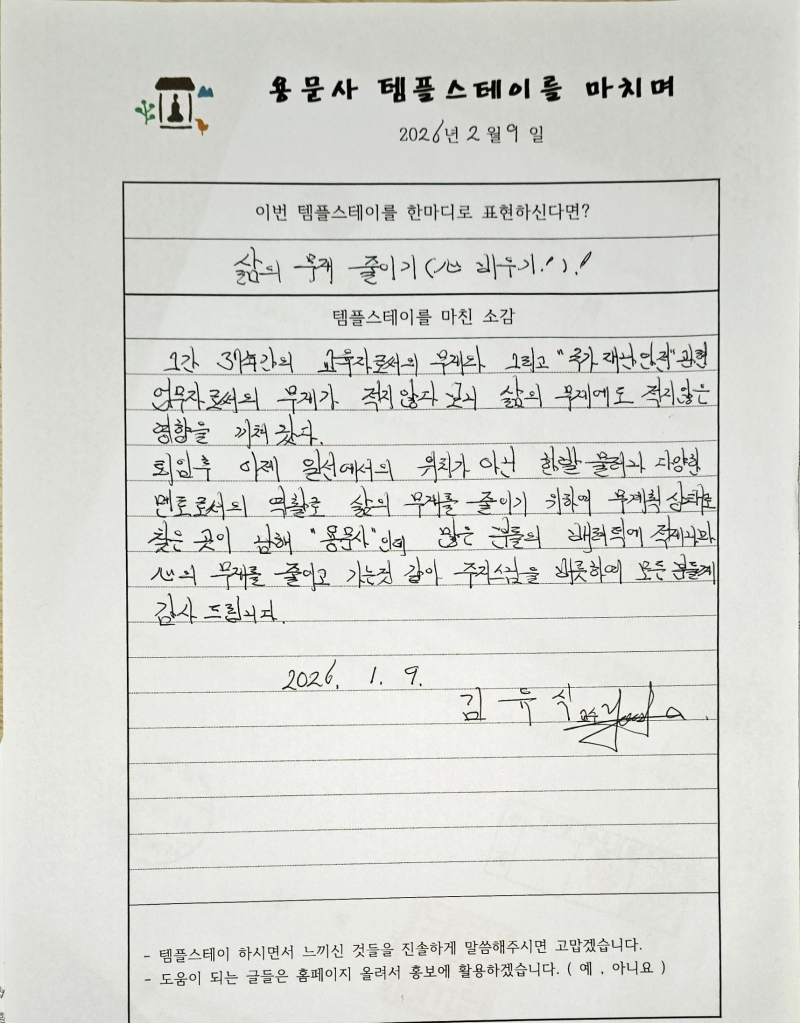 용문사 템플스테이를 마치며
2026년 2월 9일
이번 템플스테이를 한마디로 표현하신다면?
삶의 무게 줄이기 (心 비우기!)!
템플스테이를 마친 소감
그간 37年간의 교육자로써의 무게와 그리고 "국가재난안전" 관련
업무자로써의 무게가 적지않다 보니 삶의 무게에도 적지않은
영향을 끼쳐 왔다.
퇴임후 이제 일선에서의 위치가 아닌 한발 물러나 다양한
멘토로서의 역할로 삶의 무게를 줄이기 위하여 무계획 상태로
찾은 곳이 남해 "용문사"인데 많은 분들의 배려덕에
心의 무게를 줄이고 가는것 같아 주지스님을 비롯하여 모든 분들께
감사 드립니다.
2026. 1. 9.
김 식
- 템플스테이 하시면서 느끼신 것들을 진솔하게 말씀해주시면 고맙겠습니다.
- 도움이 되는 글들은 홈페이지 올려서 홍보에 활용하겠습니다. ( 예 , 아니요 )